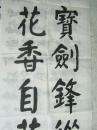 寶劍鋒從
花香自